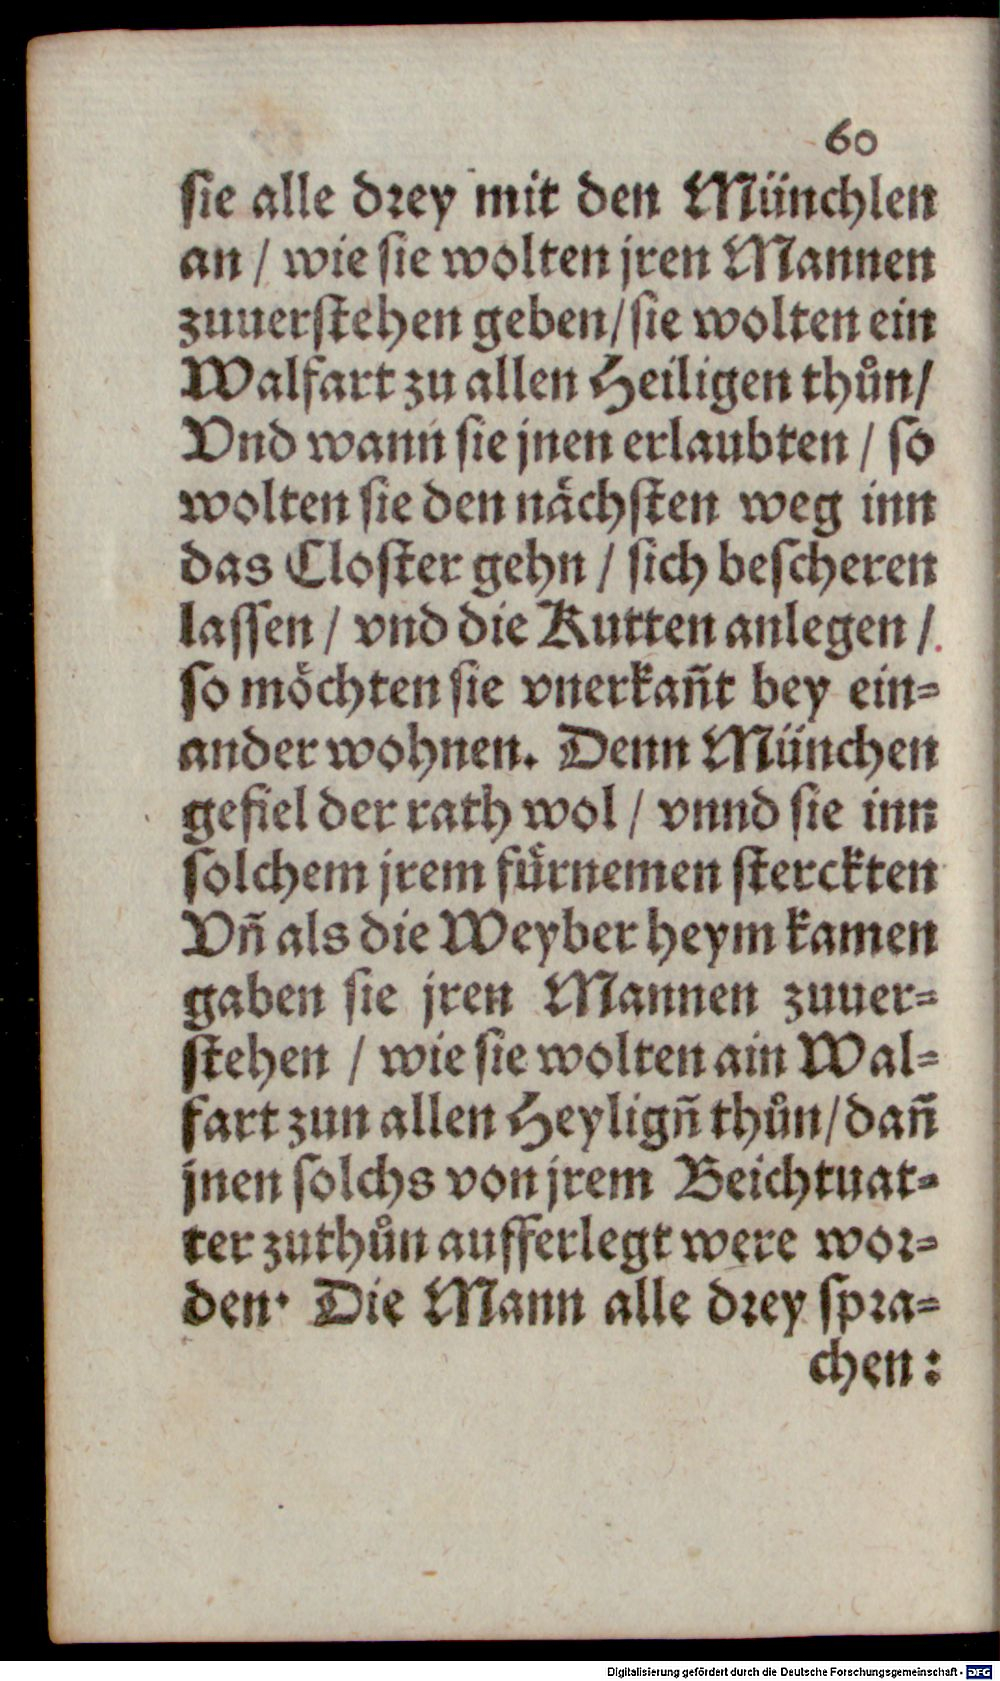 60
sie alle drey mit den Münchlen
an / wie sie wolten jren Mannen
zuuerstehen geben / sie wolten ein
Walfart zu allen Heiligen thůn /
Vnd wann sie jnen erlaubten / so
wolten sie den nächsten weg inn
das Closter gehn / sich bescheren
lassen / vnd die Kutten anlegen /
so möchten sie vnerkañt bey ein=
ander wohnen. Denn München
gefiel der rath wol / vnnd sie inn
solchem jrem fürnemen sterckten
Vñ als die Weyber heym kamen
gaben sie jren Mannen zuuer=
stehen / wie sie wolten ain Wal=
fart zun allen Heyligñ thůn / dañ
jnen solchs von jrem Beichtuat=
ter zuthůn aufferlegt were wor=
den. Die Mann alle drey spra=
chen:
Digitalisierung gefördert durch die Deutsche Forschungsgemeinschaft - DFG